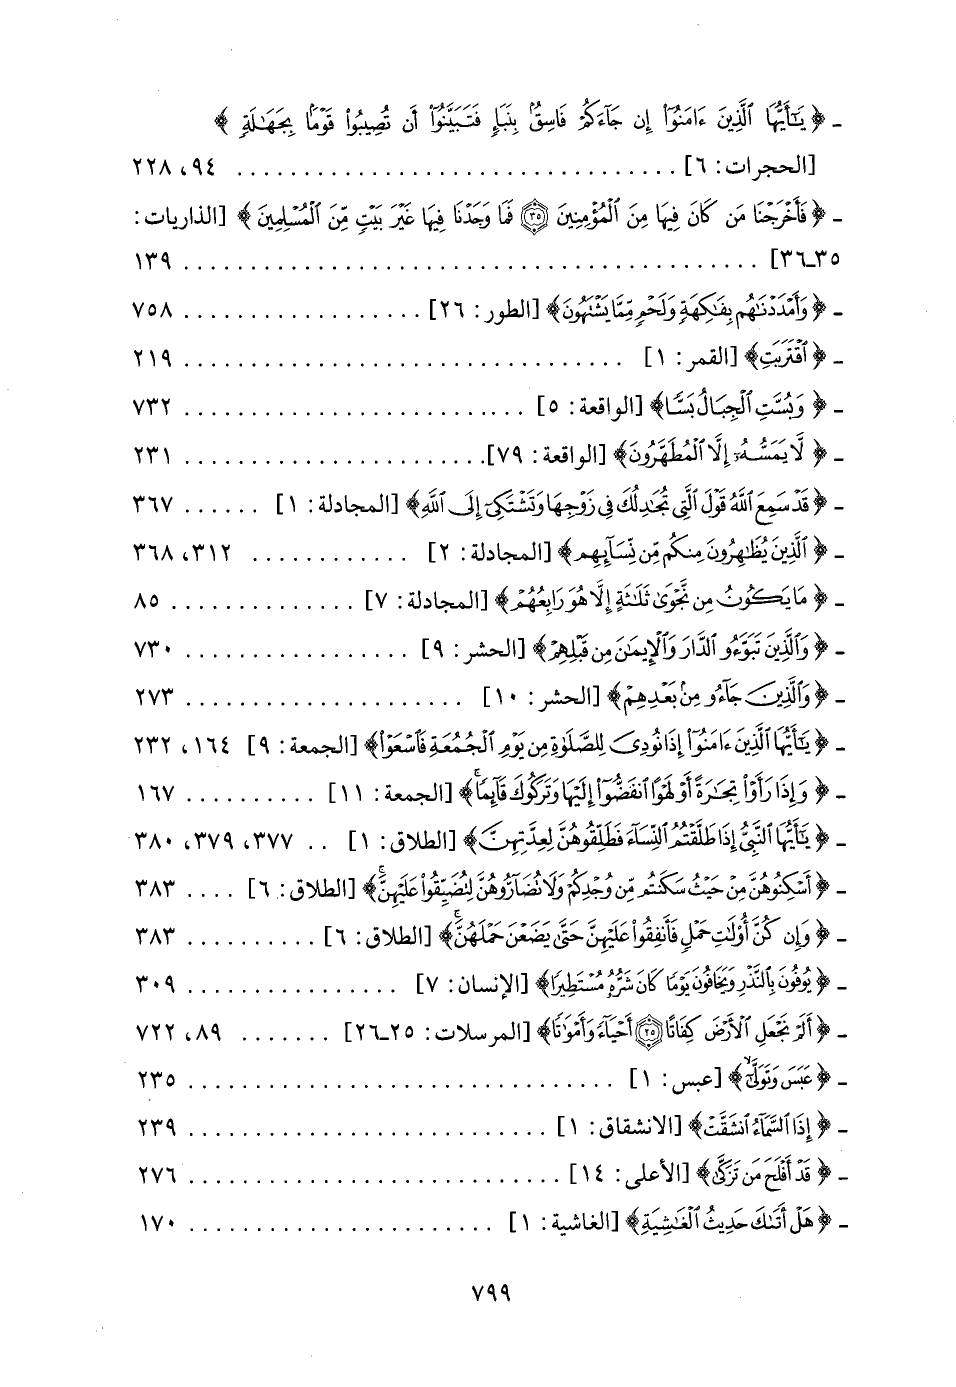 ـ ﴿ يَٰٓأَيُّهَا ٱلَّذِينَ ءَامَنُوٓا۟ إِن جَآءَكُمْ فَاسِقٌۢ بِنَبَإٍ فَتَبَيَّنُوٓا۟ أَن تُصِيبُوا۟ قَوْمًۢا بِجَهَٰلَةٍ ﴾
[الحجرات: ٦] . . . . . . . . . . . . . . . . . . . . . . . . . . . . . . . . ٩٤، ٢٢٨
ـ ﴿ فَأَخْرَجْنَا مَن كَانَ فِيهَا مِنَ ٱلْمُؤْمِنِينَ ۝٣٥ فَمَا وَجَدْنَا فِيهَا غَيْرَ بَيْتٍ مِّنَ ٱلْمُسْلِمِينَ ﴾ [الذاريات:
٣٥ـ٣٦] . . . . . . . . . . . . . . . . . . . . . . . . . . . . . . . . . . . . . . . . . . ١٣٩
ـ ﴿ وَأَمْدَدْنَٰهُم بِفَٰكِهَةٍ وَلَحْمٍ مِّمَّا يَشْتَهُونَ﴾ [الطور: ٢٦] . . . . . . . . . . . . . . . . . . ٧٥٨
ـ ﴿ ٱقْتَرَبَتِ﴾ [القمر: ١] . . . . . . . . . . . . . . . . . . . . . . . . . . . . . . . . . ٢١٩
ـ ﴿ وَبُسَّتِ ٱلْجِبَالُ بَسًّا﴾ [الواقعة: ٥] . . . . . . . . . . . . . . . . . . . . . . . . . . ٧٣٢
ـ ﴿ لَّا يَمَسُّهُۥٓ إِلَّا ٱلْمُطَهَّرُونَ﴾ [الواقعة: ٧٩]. . . . . . . . . . . . . . . . . . . . . . . ٢٣١
ـ ﴿ قَدْ سَمِعَ ٱللَّهُ قَوْلَ ٱلَّتِى تُجَٰدِلُكَ فِى زَوْجِهَا وَتَشْتَكِىٓ إِلَى ٱللَّهِ﴾ [المجادلة: ١] . . . . . . ٣٦٧
ـ ﴿ ٱلَّذِينَ يُظَٰهِرُونَ مِنكُم مِّن نِّسَآئِهِم ﴾ [المجادلة: ٢] . . . . . . . . . . . . ٣١٢، ٣٦٨
ـ ﴿ مَا يَكُونُ مِن نَّجْوَىٰ ثَلَٰثَةٍ إِلَّا هُوَ رَابِعُهُمْ﴾ [المجادلة: ٧] . . . . . . . . . . . . . . ٨٥
ـ ﴿ وَٱلَّذِينَ تَبَوَّءُو ٱلدَّارَ وَٱلْإِيمَٰنَ مِن قَبْلِهِمْ﴾ [الحشر: ٩] . . . . . . . . . . . . . . . . . ٧٣٠
ـ ﴿ وَٱلَّذِينَ جَآءُو مِنۢ بَعْدِهِمْ﴾ [الحشر: ١٠] . . . . . . . . . . . . . . . . . . . . . ٢٧٣
ـ ﴿ يَٰٓأَيُّهَا ٱلَّذِينَ ءَامَنُوٓا۟ إِذَا نُودِىَ لِلصَّلَوٰةِ مِن يَوْمِ ٱلْجُمُعَةِ فَٱسْعَوْا۟﴾ [الجمعة: ٩] ١٦٤، ٢٣٢
ـ ﴿ وَإِذَا رَأَوْا۟ تِجَٰرَةً أَوْ لَهْوًا ٱنفَضُّوٓا۟ إِلَيْهَا وَتَرَكُوكَ قَآئِمًا ۚ﴾ [الجمعة: ١١] . . . . . . . . . . ١٦٧
ـ ﴿ يَٰٓأَيُّهَا ٱلنَّبِىُّ إِذَا طَلَّقْتُمُ ٱلنِّسَآءَ فَطَلِّقُوهُنَّ لِعِدَّتِهِنَّ﴾ [الطلاق: ١] . . ٣٧٧، ٣٧٩، ٣٨٠
ـ ﴿ أَسْكِنُوهُنَّ مِنْ حَيْثُ سَكَنتُم مِّن وُجْدِكُمْ وَلَا تُضَآرُّوهُنَّ لِتُضَيِّقُوا۟ عَلَيْهِنَّ ۚ﴾ [الطلاق: ٦] . . . . ٣٨٣
ـ ﴿ وَإِن كُنَّ أُو۟لَٰتِ حَمْلٍ فَأَنفِقُوا۟ عَلَيْهِنَّ حَتَّىٰ يَضَعْنَ حَمْلَهُنَّ ۚ﴾ [الطلاق: ٦] . . . . . . . . . . ٣٨٣
ـ ﴿ يُوفُونَ بِٱلنَّذْرِ وَيَخَافُونَ يَوْمًا كَانَ شَرُّهُۥ مُسْتَطِيرًا﴾ [الإنسان: ٧] . . . . . . . . . . . . . . . . ٣٠٩
ـ ﴿ أَلَمْ نَجْعَلِ ٱلْأَرْضَ كِفَاتًا ۝٢٥ أَحْيَآءً وَأَمْوَٰتًا﴾ [المرسلات: ٢٥ـ٢٦] . . . . . . . ٨٩، ٧٢٢
ـ ﴿ عَبَسَ وَتَوَلَّىٰٓ ۙ﴾ [عبس: ١] . . . . . . . . . . . . . . . . . . . . . . . . . . . . . . . . ٢٣٥
ـ ﴿ إِذَا ٱلسَّمَآءُ ٱنشَقَّتْ﴾ [الانشقاق: ١] . . . . . . . . . . . . . . . . . . . . . . . . . . . ٢٣٩
ـ ﴿ قَدْ أَفْلَحَ مَن تَزَكَّىٰ﴾ [الأعلى: ١٤] . . . . . . . . . . . . . . . . . . . . . . . . . . . . ٢٧٦
ـ ﴿ هَلْ أَتَىٰكَ حَدِيثُ ٱلْغَٰشِيَةِ﴾ [الغاشية: ١] . . . . . . . . . . . . . . . . . . . . . . . ١٧٠
٧٩٩